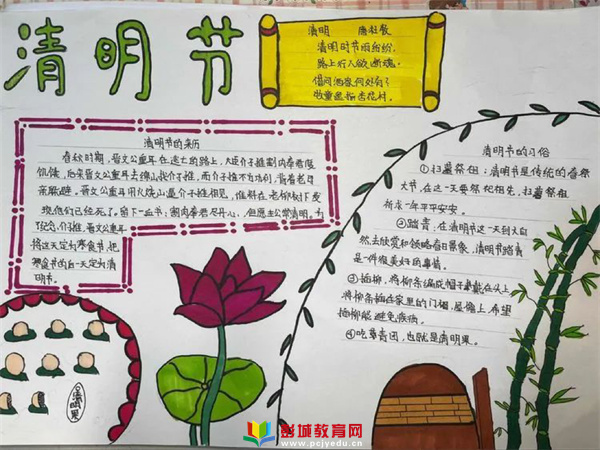 清明节
清明 唐杜牧
清明时节雨纷纷,
路上行人欲断魂。
借问酒家何处有?
牧童遥指杏花村。
清明节的来历
春秋时期,晋文公重耳在逃亡的路上,大臣介子推割肉奉君度
饥饿,后来晋文公重耳去绵山找介子推,而介子推不肯为官,背着老母
亲躲避。晋文公重耳用火烧山逼介子推相见,
现他们已经死了。留下一血书:割肉奉君尽丹心,但愿主公常清明,
纪念介子推,晋文公重耳
将这天定为寒食节,把
寒食节的后一天定为清
明节。
清明节的习俗
①扫墓祭祖:清明节是传统的春祭
大节,在这一天要祭祀祖先,扫墓祭祖
祈求一年平平安安。
②踏青,在清明节这一天到大自
然去欣赏和领略春日景象,清明节踏青
是一件很美好的事情。
③插柳,将柳条编成帽子戴在头上
将柳条插在家里的门楣、屋檐上,希望
插柳能避免疾病。
④吃草青团,也就是清明果。
清明果
彭城教育网
www.pcjyedu.cn